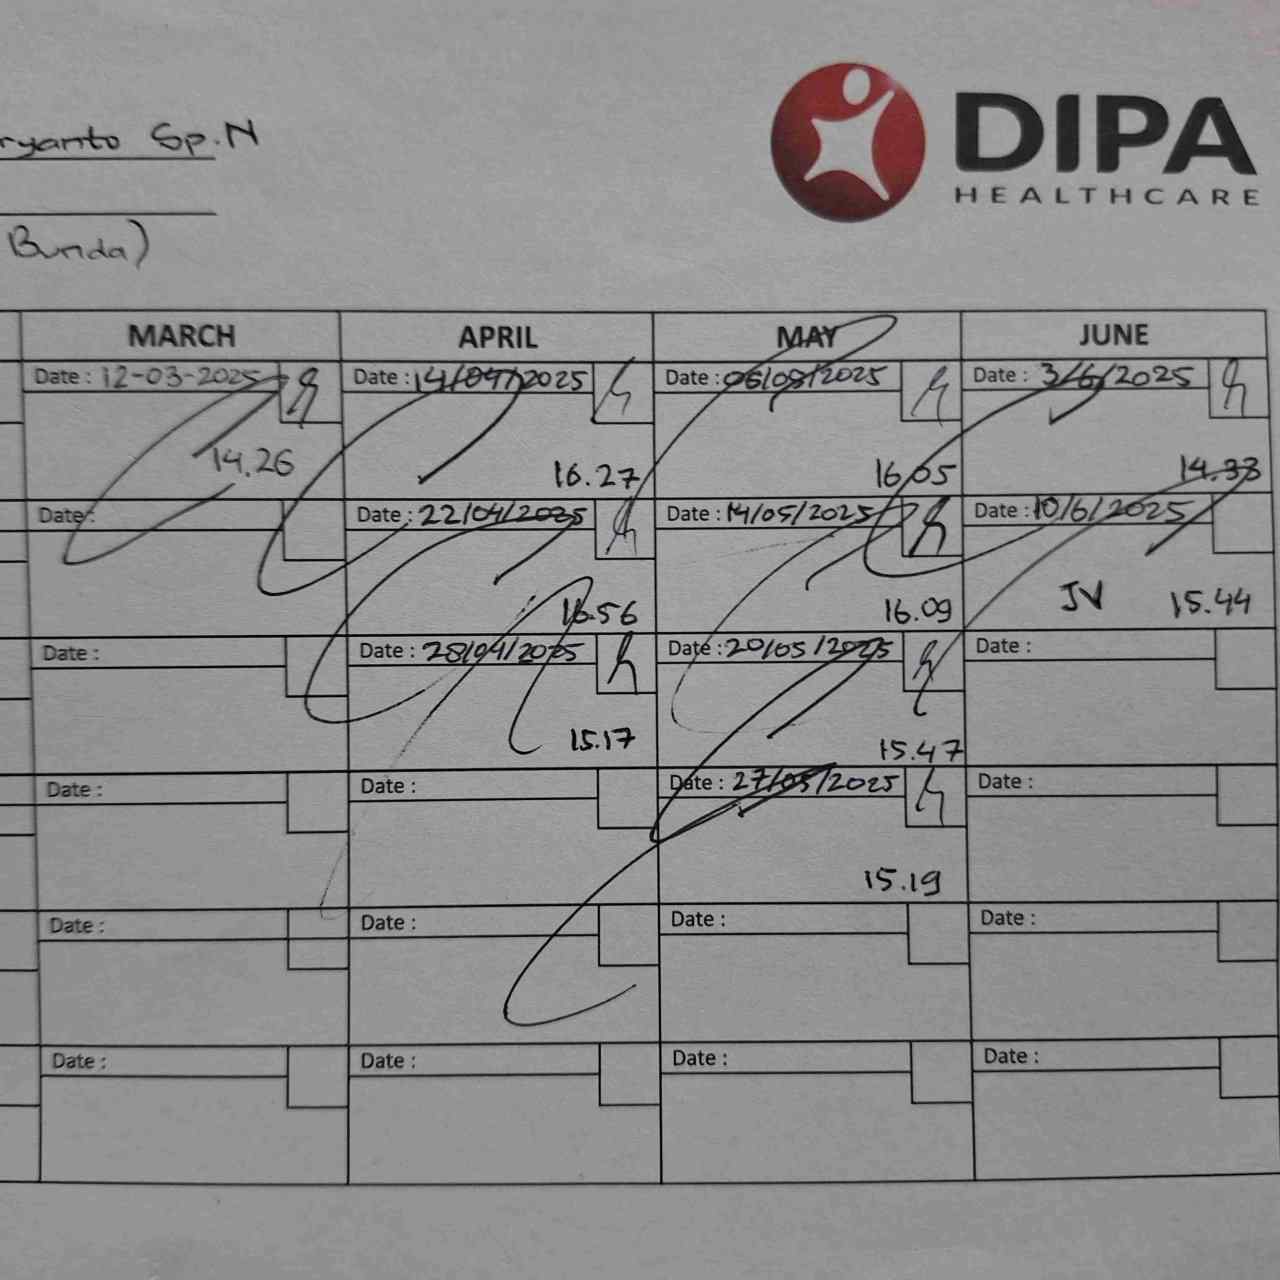 ryanto Sp.N
DIPA
HEALTHCARE
Bunda)
MARCH APRIL MAY JUNE
Date : 12-03-2025 Date : 14/04/2025 Date : 06/05/2025 Date : 3/6/2025
14.26 16.27 16.05 14.33
Date : Date : 22/04/2025 Date : 14/05/2025 Date : 10/6/2025
16.56 16.09 JV 15.44
Date : Date : 28/04/2025 Date : 20/05/2025 Date :
15.17 15.47
Date : Date : Date : 27/05/2025 Date :
15.19
Date : Date : Date : Date :
Date : Date : Date : Date :